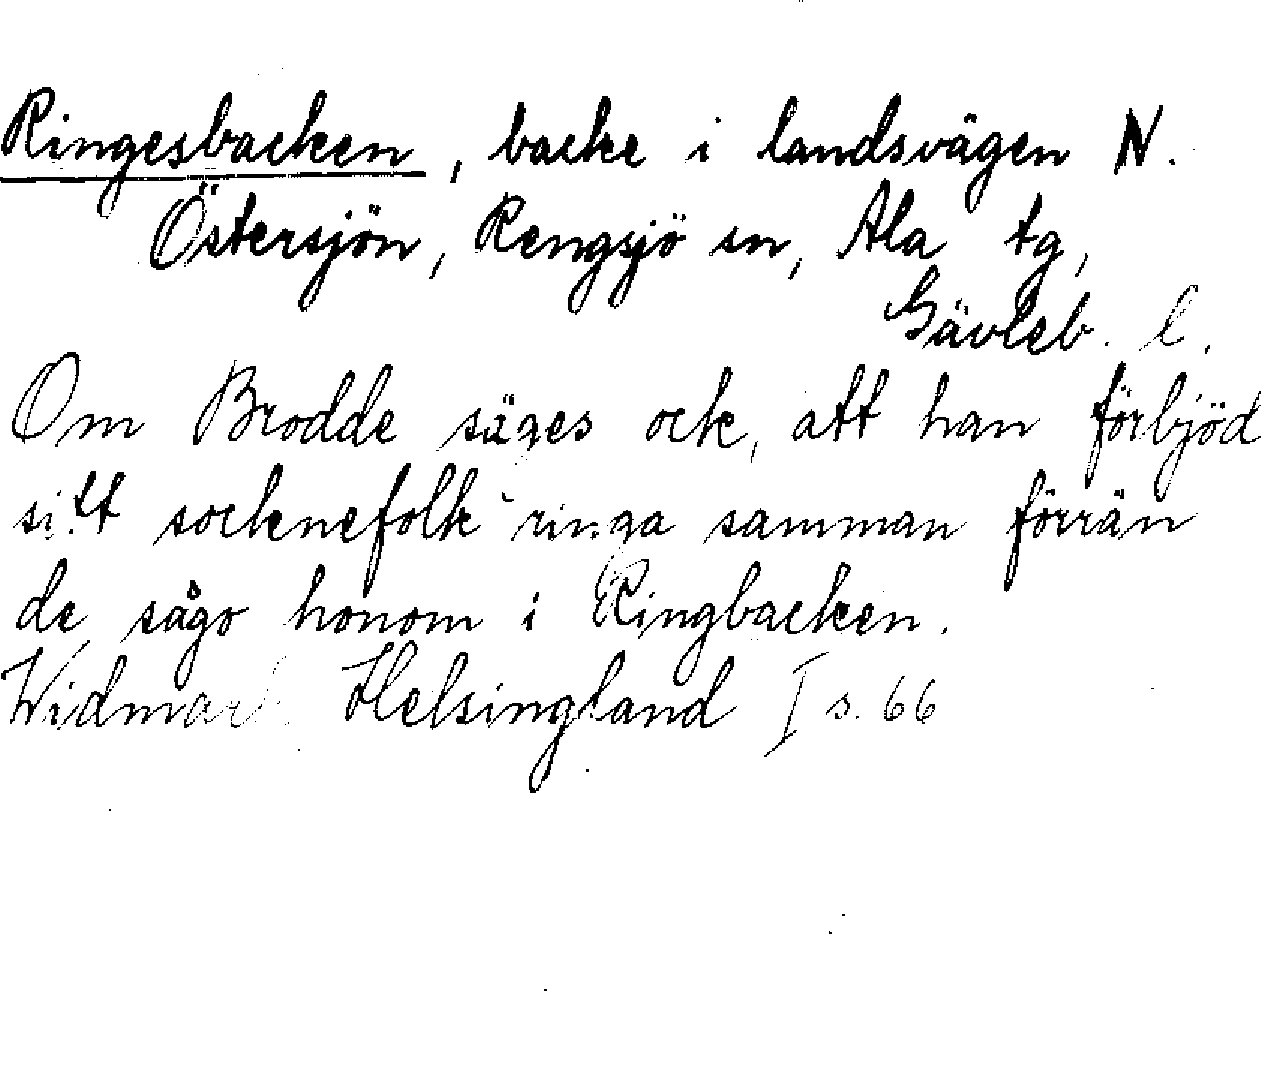 Ringesbacken, backe i landsvägen N.
Östersjön, Rengsjö sn, Ala tg,
Gävleb. l.
Om Brodde säges ock, att han förbjöd
sitt socknefolk ringa samman förrän
de sågo honom i Ringbacken.
Widmark Helsingland I s. 66